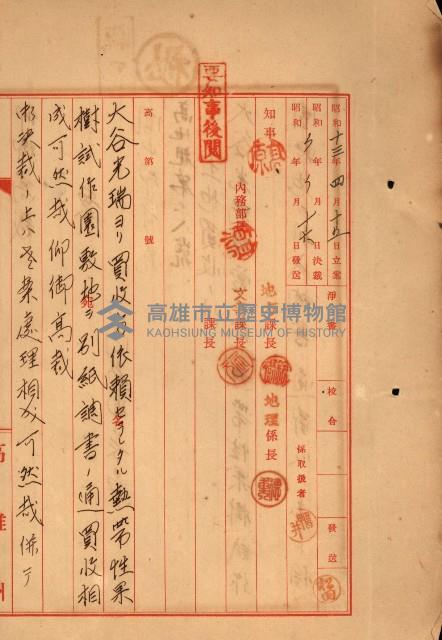 要知事後閲
昭和十三年四月十五日立案
昭和 年 月 日決裁
昭和 年 月 日發送
淨書
校合
發送
知事
內務部長
地方課長
地理係長
係取扱者
文書課長
課長
高第 號
件名
大谷光瑞ヨリ買收方依賴セラレタル熱帶性果
樹試作園敷地ヲ別紙調書ノ通買收相
成可然哉仰御高裁
御決裁ノ上ハ左案處理相成可然哉併テ
高雄州
高雄市立歷史博物館
KAOHSIUNG MUSEUM OF HISTORY